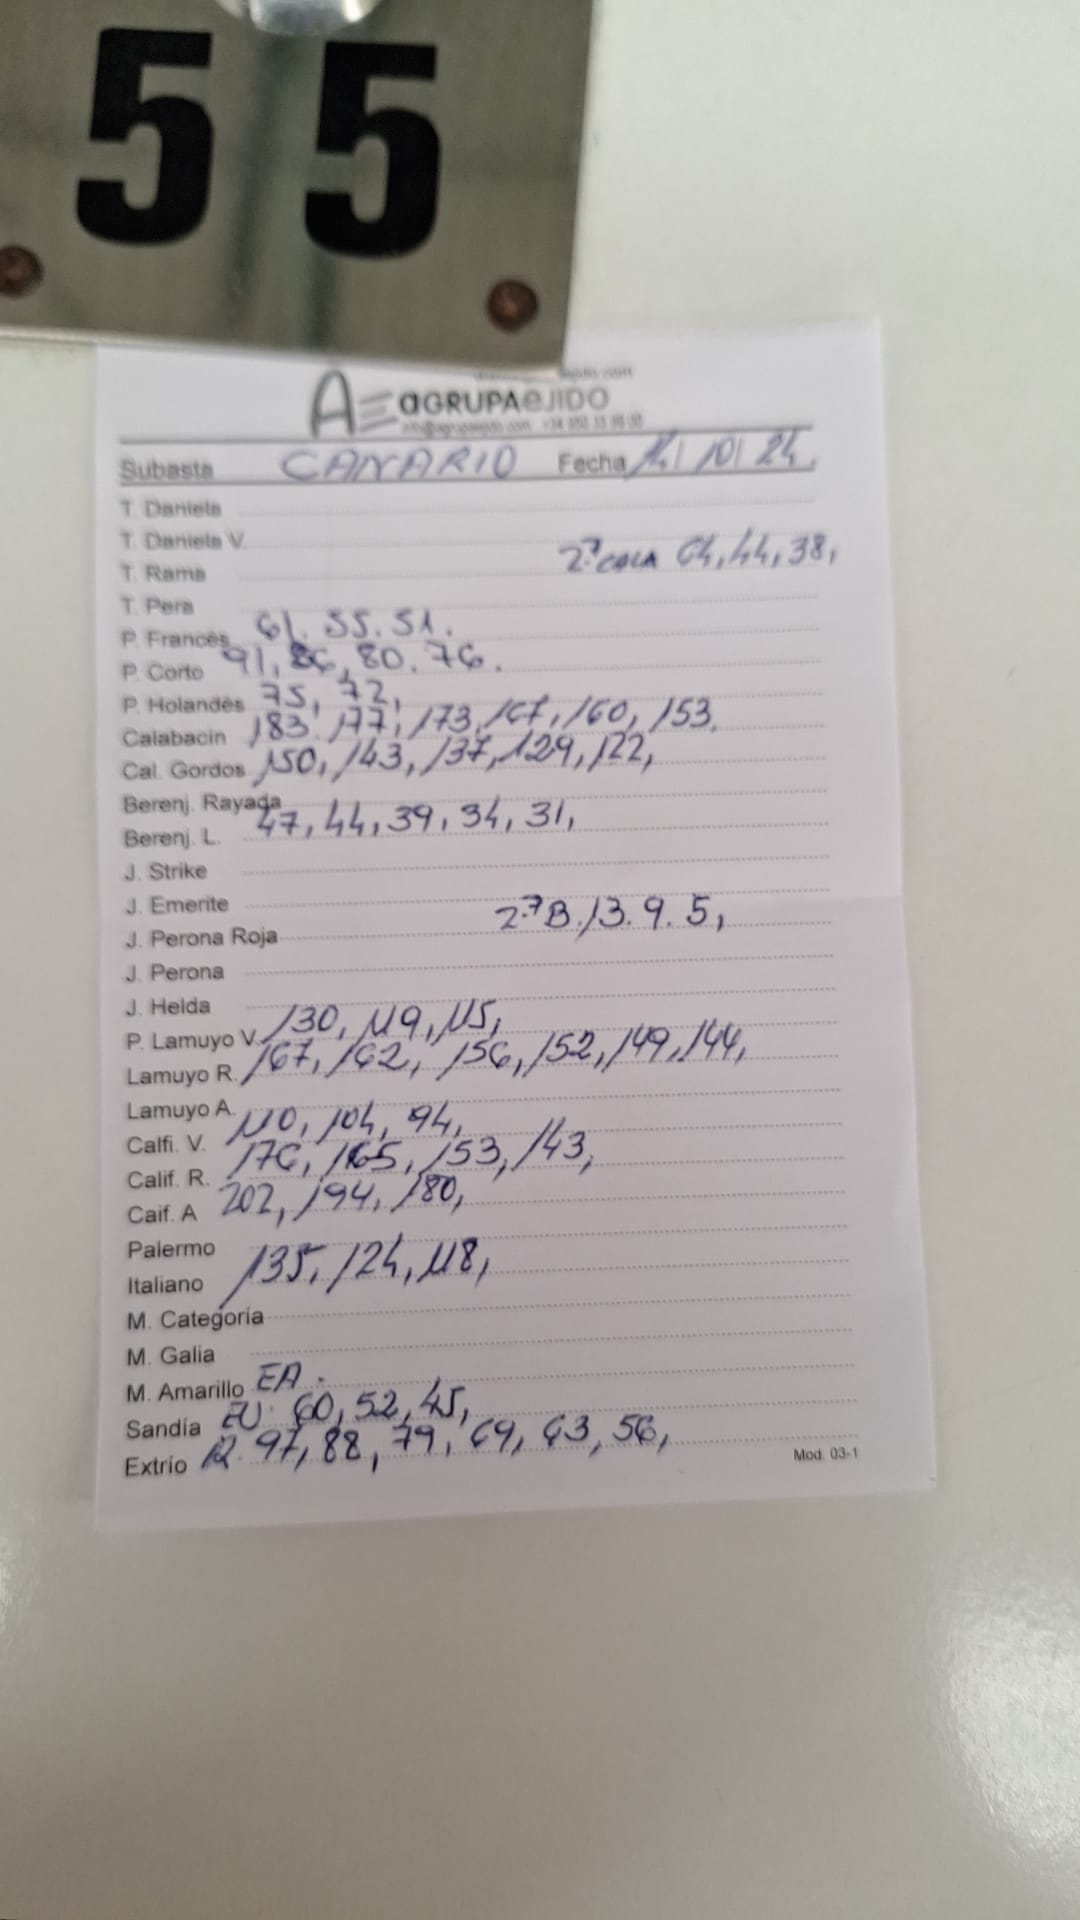 55
AE aGRUPAeJIDO
Subasta CANARIO Fecha 10/24.
T. Daniela
T. Daniela V.
2ª CALA 64, 44, 38,
T. Rama
T. Pera
P. Francés 61. 55. 51.
P. Corto 91, 86, 80. 76.
P. Holandés 75, 72,
Calabacin 183, 177, 173, 167, 160, 153.
Cal. Gordos 150, 143, 137, 129, 122,
Berenj. Rayada
Berenj. L. 47, 44, 39, 34, 31,
J. Strike
J. Emerite
J. Perona Roja 2ª B. 13. 9. 5,
J. Perona
J. Helda
P. Lamuyo V. 130, 119, 115,
Lamuyo R. 167, 162, 156, 152, 149, 144,
Lamuyo A.
Calfi. V. 110, 104, 94,
Calif. R. 176, 165, 153, 143,
Caif. A 202, 194, 180,
Palermo
Italiano 135, 124, 118,
M. Categoría
M. Galia
M. Amarillo EA.
Sandía EU. 60, 52, 45,
Extrio R. 97, 88, 79, 69, 63, 56,
Mod. 03-1